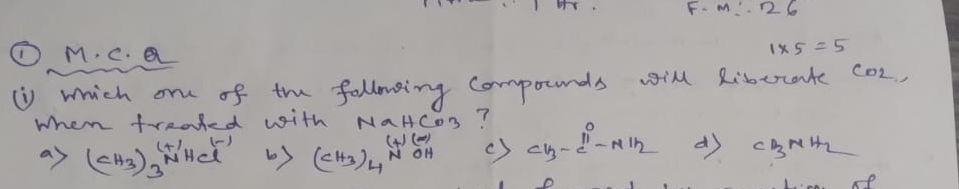 F.M:. 26
① M.C.Q
1x5=5
(i) which one of the following Compounds will liberate CO2,
when treated with NaHCO3 ?
a) (CH3)3N(+)HCl(-) b) (CH3)4N(+)OH(-) c) CH3-C(=O)-NH2 d) CH3NH2